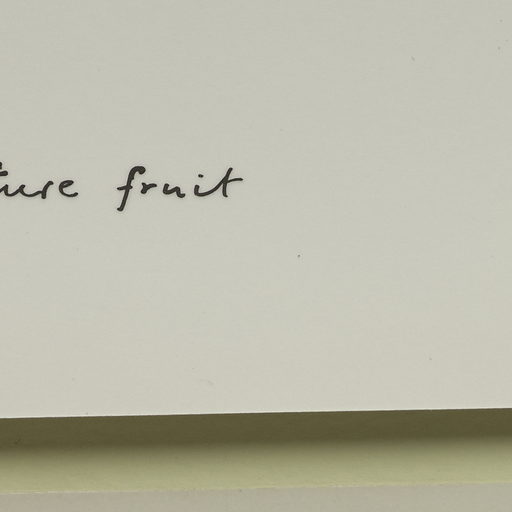 ture fruit